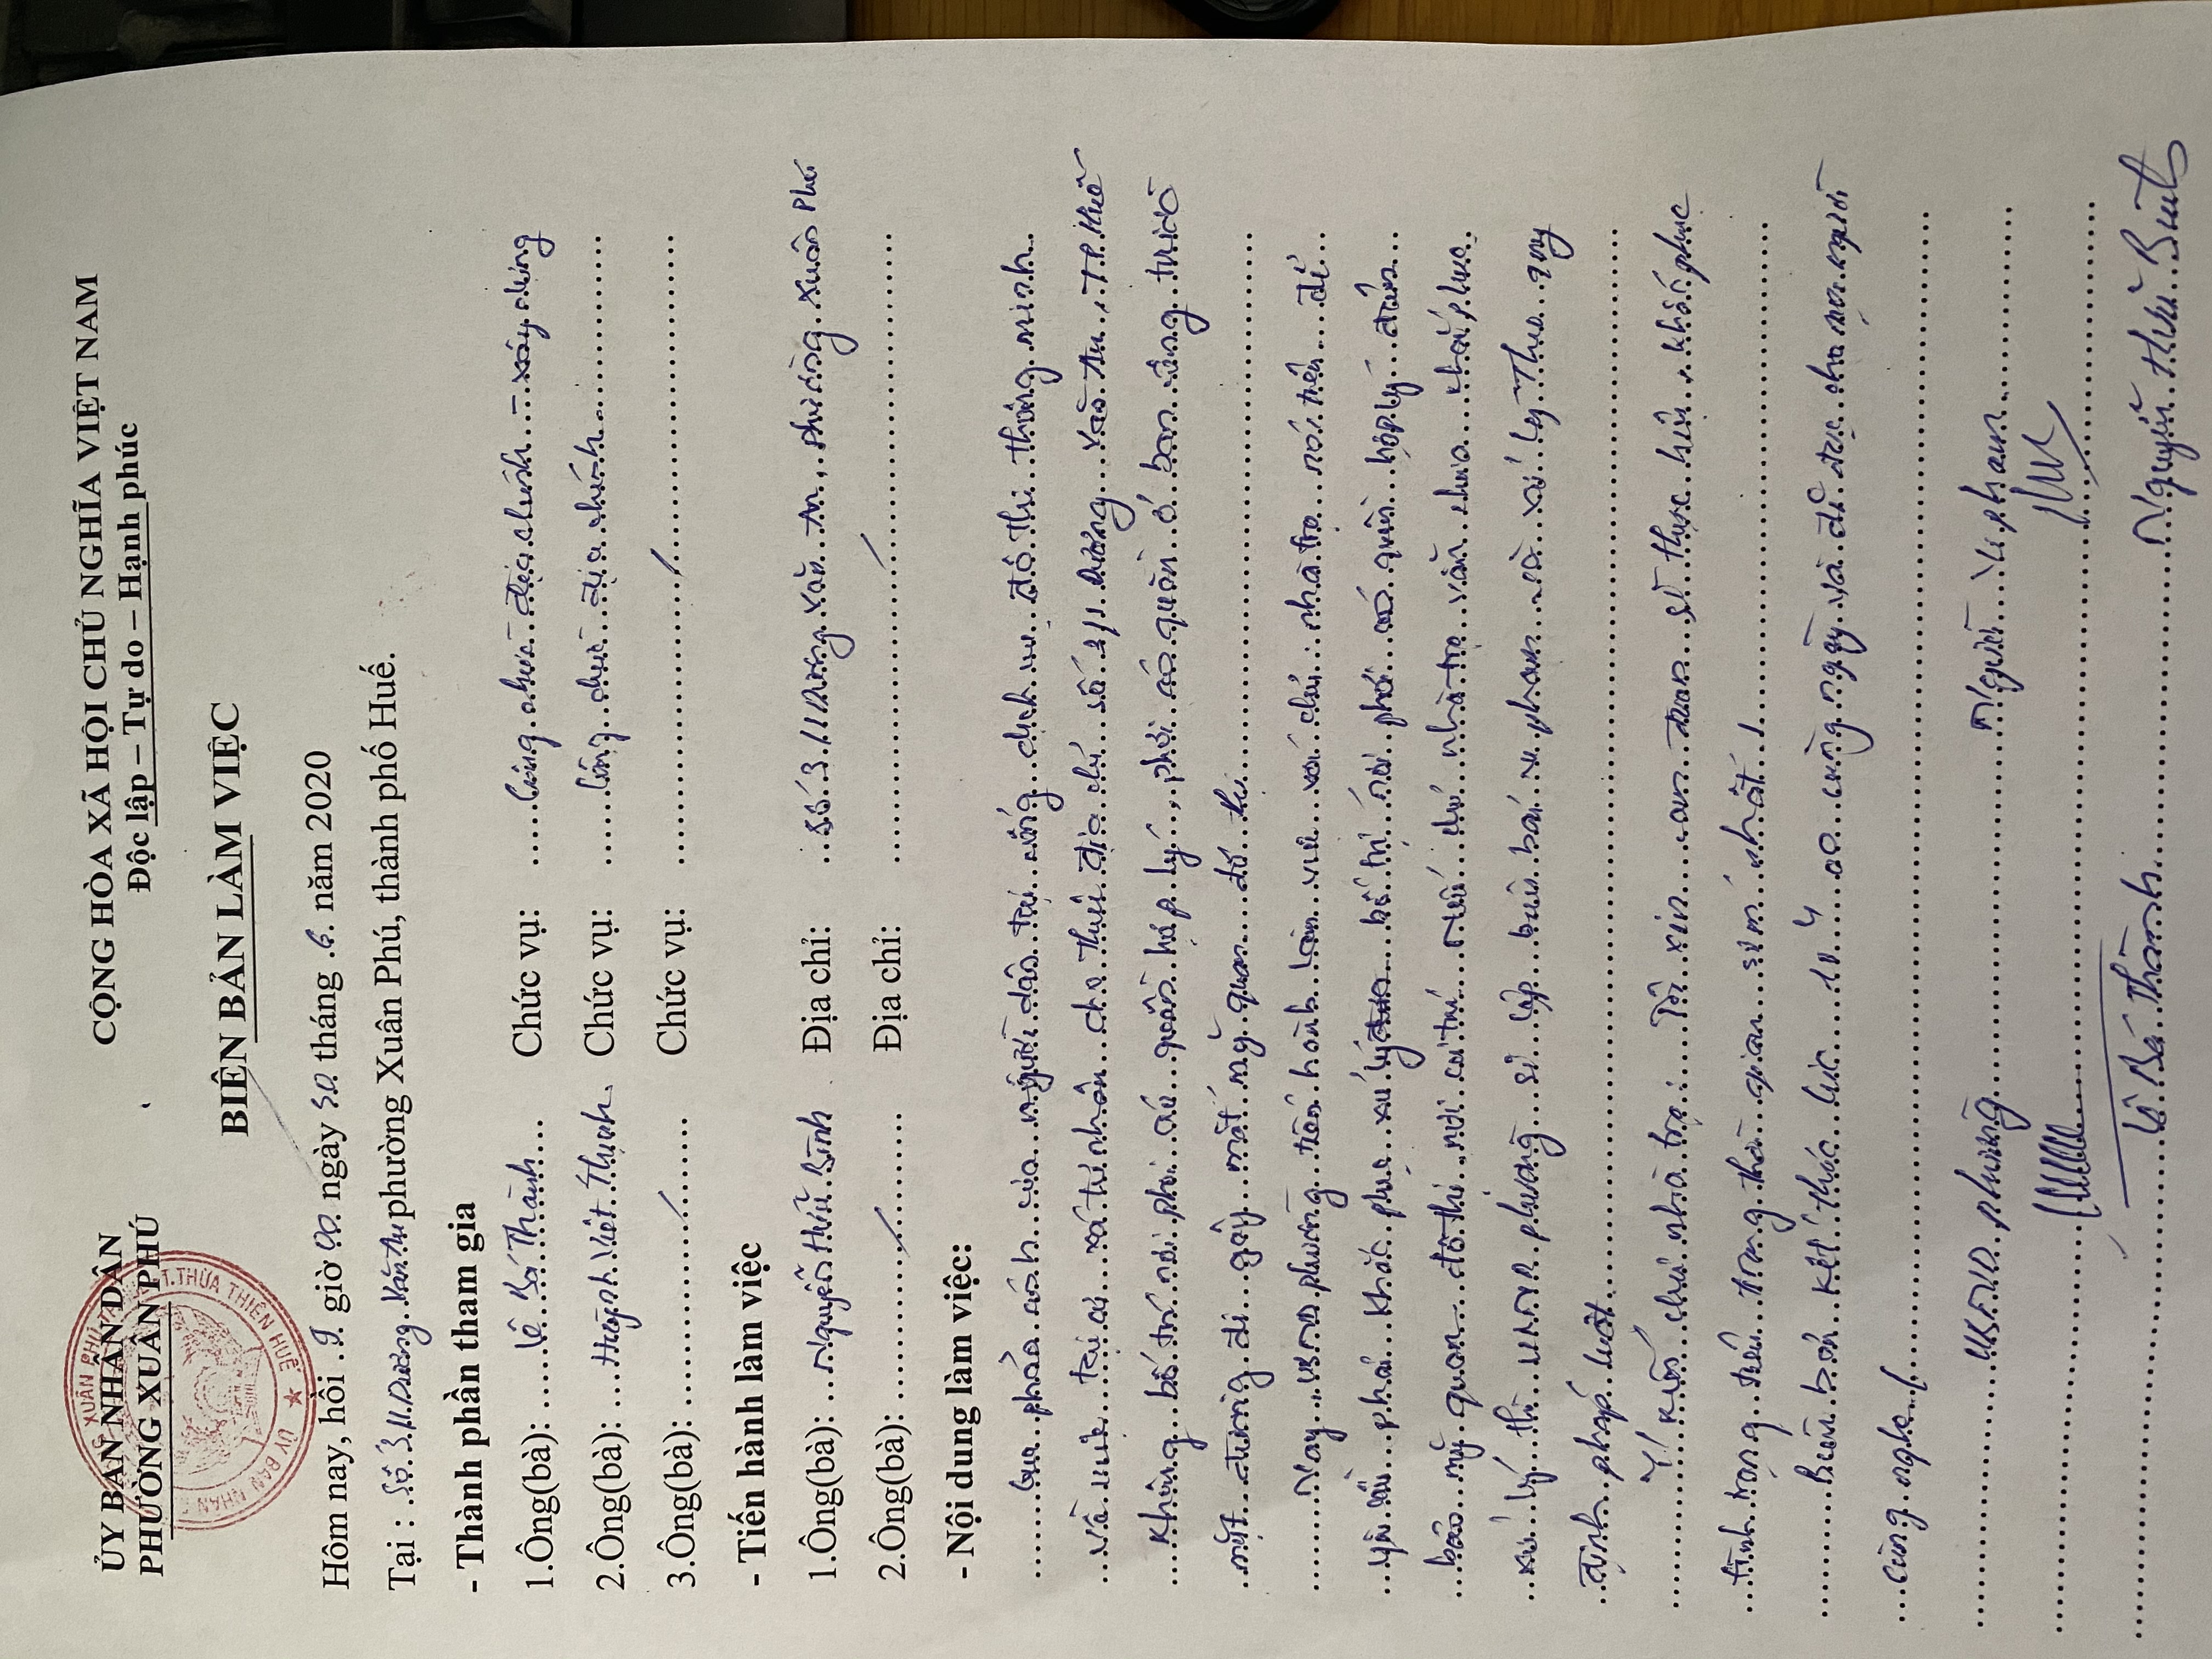 ỦY BAN NHÂN DÂN
PHƯỜNG XUÂN PHÚ
CỘNG HÒA XÃ HỘI CHỦ NGHĨA VIỆT NAM
Độc lập – Tự do – Hạnh phúc
BIÊN BẢN LÀM VIỆC
Hôm nay, hồi 9 giờ 00 ngày tháng 6 năm 2020
Tại : Số 3/1 Dương Văn An phường Xuân Phú, thành phố Huế.
- Thành phần tham gia
1.Ông(bà): Lê Bá Thành Chức vụ: Công chức địa chính - xây dựng
2.Ông(bà): Huỳnh Viết Thạnh Chức vụ: Công chức địa chính
3.Ông(bà): Chức vụ:
- Tiến hành làm việc
1.Ông(bà): Nguyễn Hữu Bình Địa chỉ: Số 3/1 Dương Văn An, phường Xuân Phú
2.Ông(bà): Địa chỉ:
- Nội dung làm việc:
Qua phản ánh của người dân tại cổng dịch vụ đô thị thông minh
Về việc tại cơ sở tư nhân cho thuê địa chỉ số 3/1 Dương Văn An, TP Huế
Không bố trí nơi phơi áo quần hợp lý, phơi áo quần ở ban công trước
mặt đường đi gây mất mỹ quan đô thị
Nay UBND phường tiến hành làm việc với chủ nhà trọ nói trên để
yêu cầu phải khắc phục xử lý bố trí nơi phơi áo quần hợp lý đảm
bảo mỹ quan đô thị, nơi cư trú nếu chủ nhà trọ vẫn chưa khắc phục
xử lý thì UBND phường sẽ lập biên bản vi phạm và xử lý theo quy
định pháp luật.
Ý kiến chủ nhà trọ: Tôi xin cam đoan sẽ thực hiện, khắc phục
tình trạng trên trong thời gian sớm nhất.
Biên bản kết thúc lúc 10 00 cùng ngày và đã đọc cho mọi người
cùng nghe.
UBND phường Người vi phạm
Lê Bá Thành Nguyễn Hữu Bình